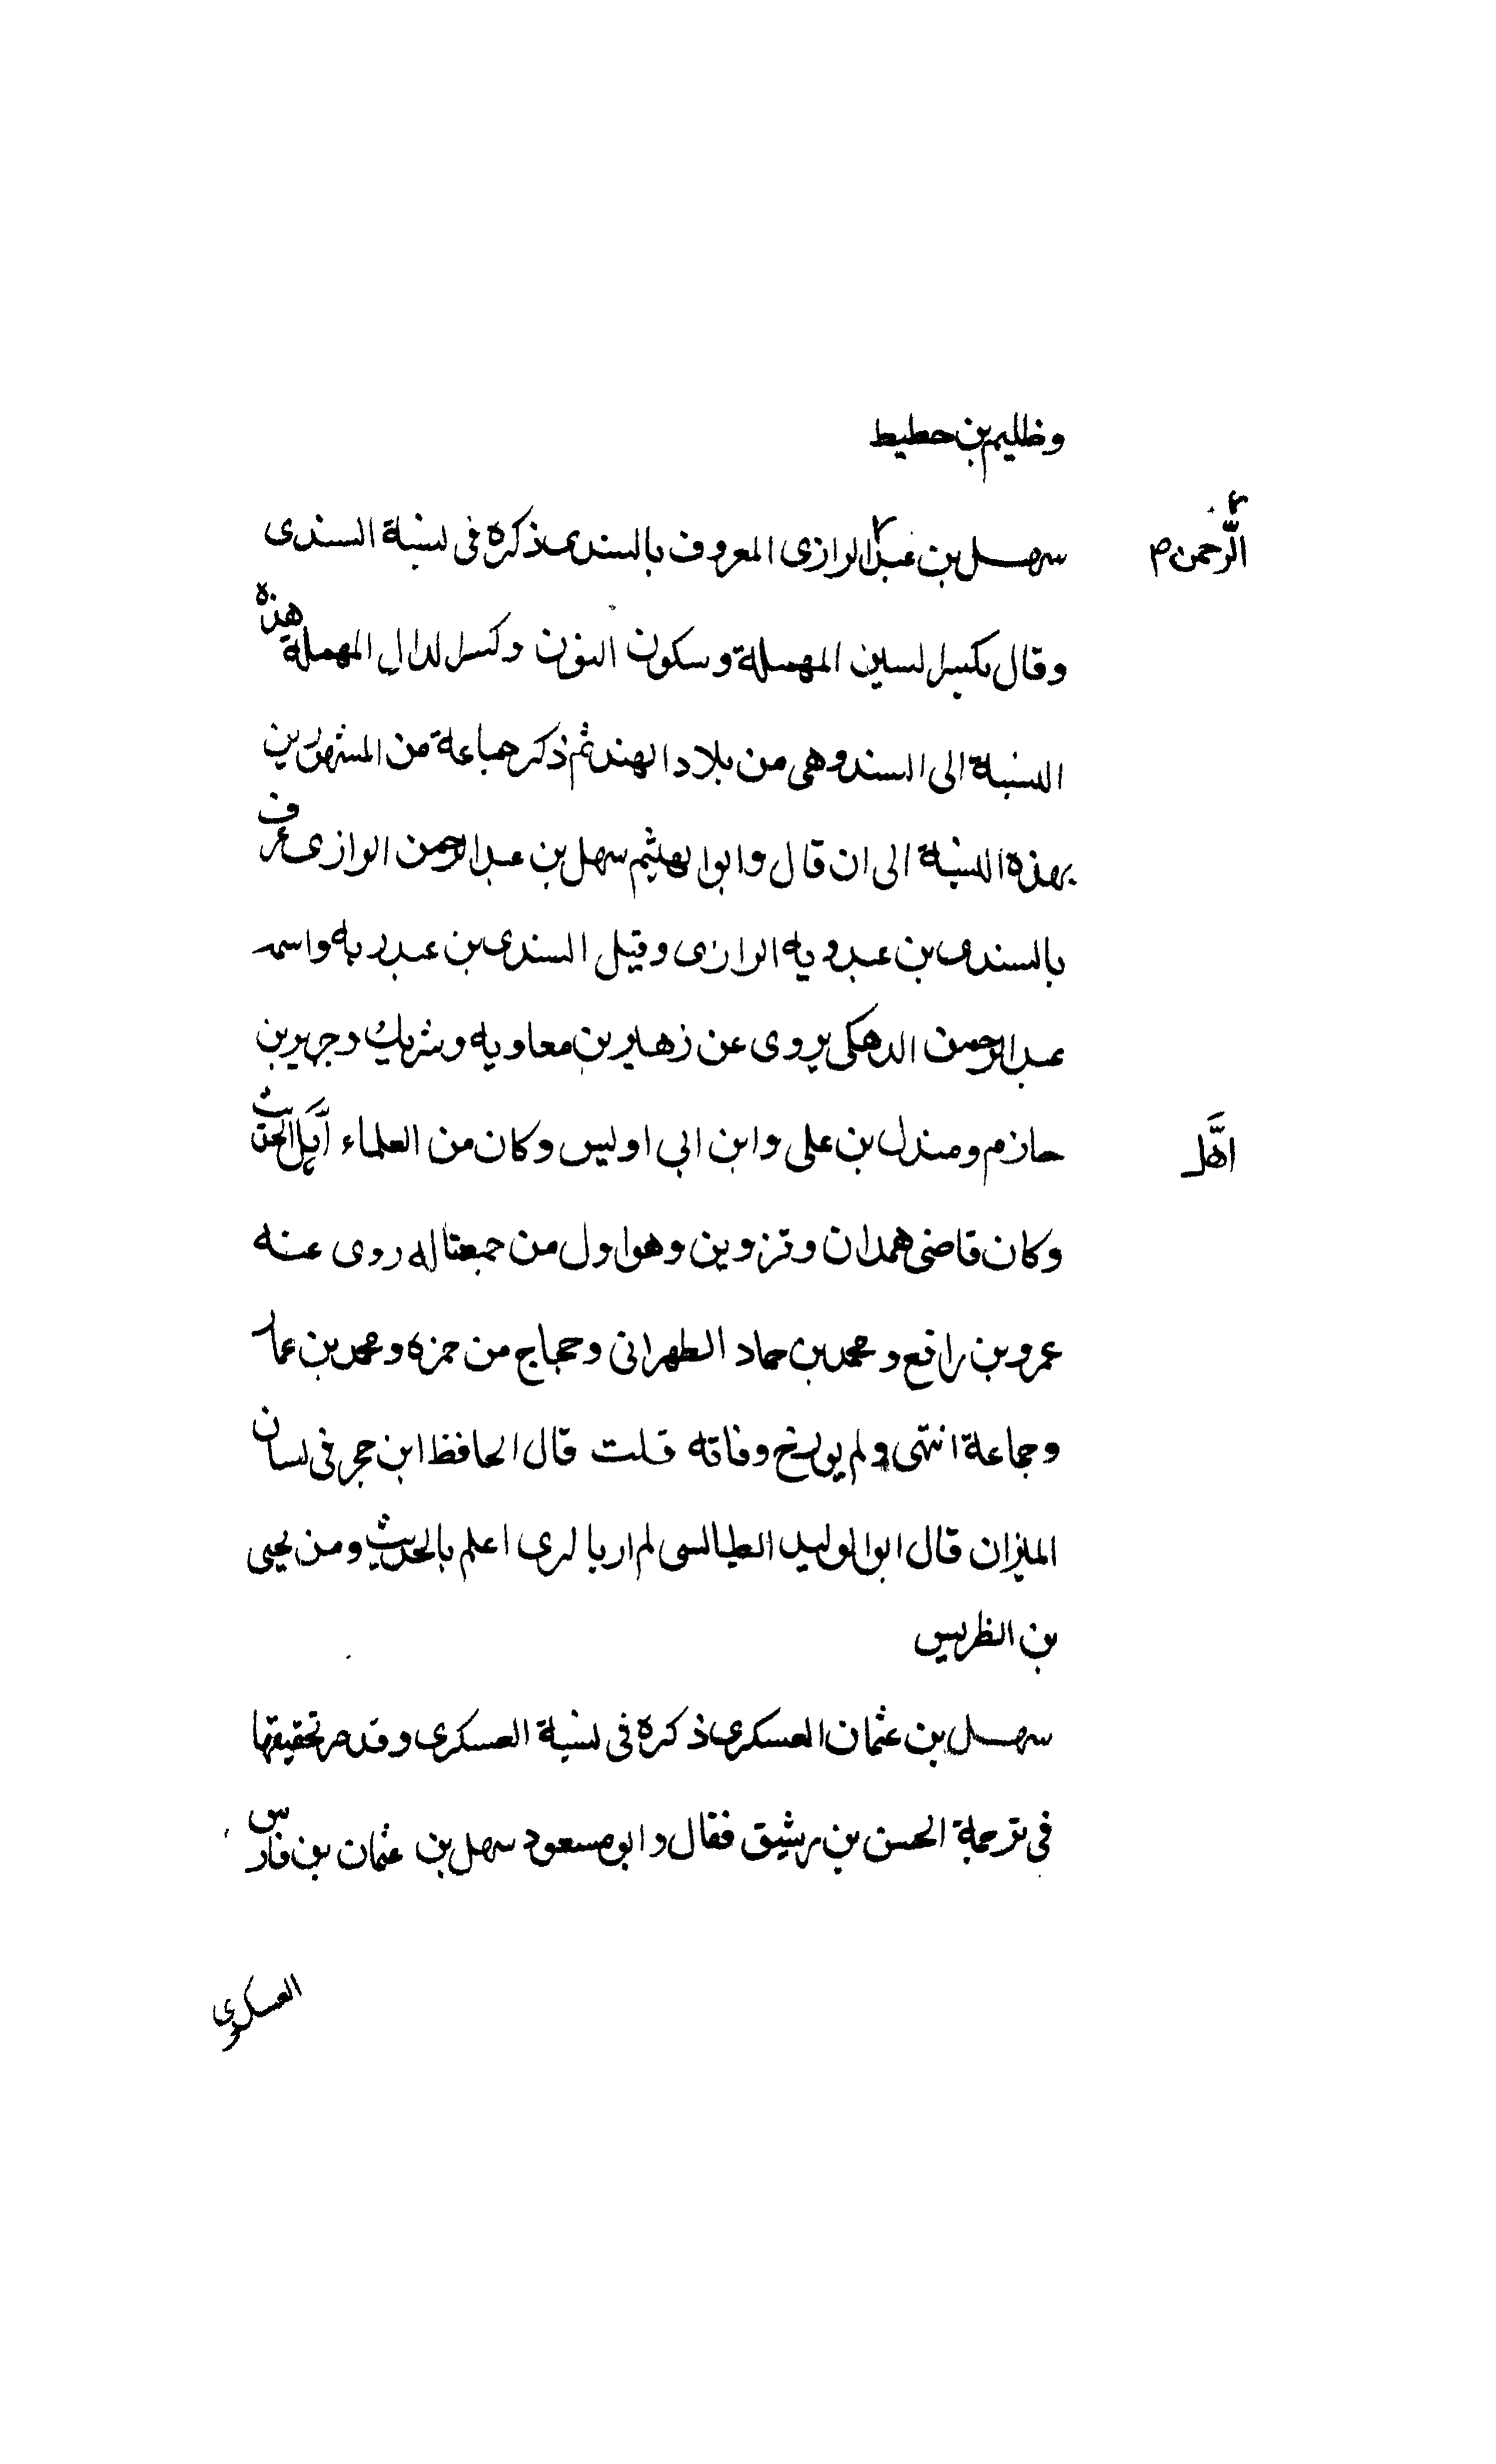 وظليم بن حطيط
سهل بن عبد الرازى المعروف بالسندى ذكره فى نسبة السندى
الرحمن م
وقال بكسر السين المهملة وسكون النون وكسر الدال المهملة هذه
النسبة الى السند وهى من بلاد الهند ثم ذكر جماعة من المشهورين
بهذه النسبة الى ان قال وابو الهيثم سهل بن عبد الرحمن الرازى عرف
بالسندى بن عبدويه الرازى وقيل السندى بن عبد ربه واسمه
عبد الرحمن الدهكى يروى عن زهير بن معاويه وشريك وجرير بن
حازم ومندل بن على وابن ابى اويس وكان من العلماء الحديث
اهل
وكان قاضى همدان وقزوين وهو اول من جمعتا له روى عنه
عمرو بن رافع ومحمد بن حماد الطهرانى وحجاج من حمزه ومحمد بن عمار
وجماعة انتهى ولم يورخ وفاته قلت قال الحافظ ابن حجر فى لسان
الميزان قال ابو الوليد الطيالسى لم ار بالرى اعلم بالحديث ومن يحيى
بن الظريس
سهل بن عثمان العسكرى ذكره فى نسبة العسكرى وقد مر تحقيقها
فى ترجمة الحسن بن رشيق فقال وابو مسعود سهل بن عثمان بن فارس
العسكرى